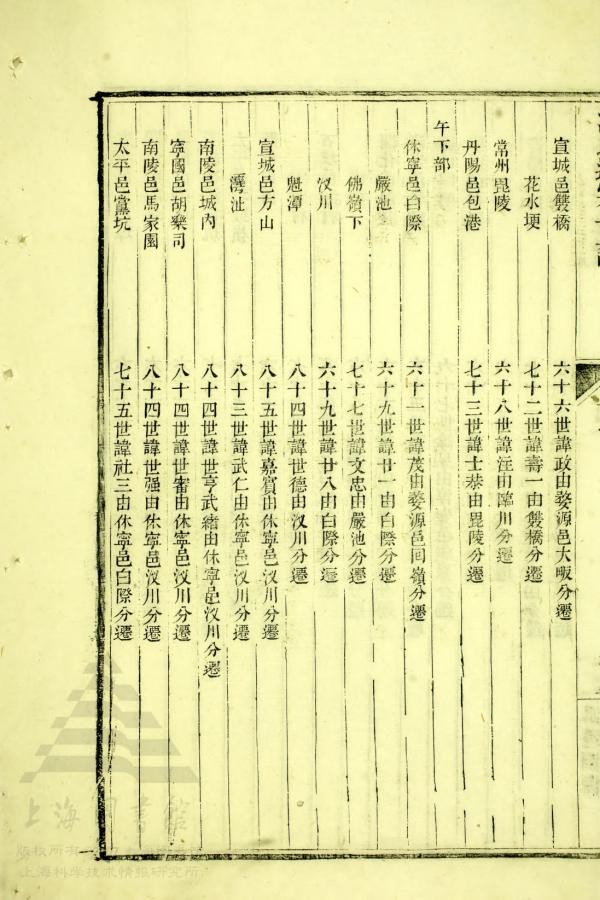 宣城邑雙橋 六十六世諱政由婺源邑大畈分遷
花水埂 七十二世諱壽一由雙橋分遷
常州毘陵 六十八世諱注由臨川分遷
丹陽邑包港 七十三世諱士恭由毘陵分遷
午下部
休寧邑白際 六十一世諱茂由婺源邑回嶺分遷
嚴池 六十九世諱廿一由白際分遷
佛嶺下 七十七世諱文忠由嚴池分遷
汊川 六十九世諱廿八由白際分遷
魁潭 八十四世諱世德由汊川分遷
宣城邑方山 八十五世諱嘉賓由休寧邑汊川分遷
灣沚 八十三世諱武仁由休寧邑汊川分遷
南陵邑城內 八十四世諱世亨武緒由休寧邑汊川分遷
寧國邑胡樂司 八十四世諱世審由休寧邑汊川分遷
南陵邑馬家園 八十四世諱世强由休寧邑汊川分遷
太平邑黨坑 七十五世諱社三由休寧邑白際分遷
上海圖書館
版权所有
上海科学技术情报研究所